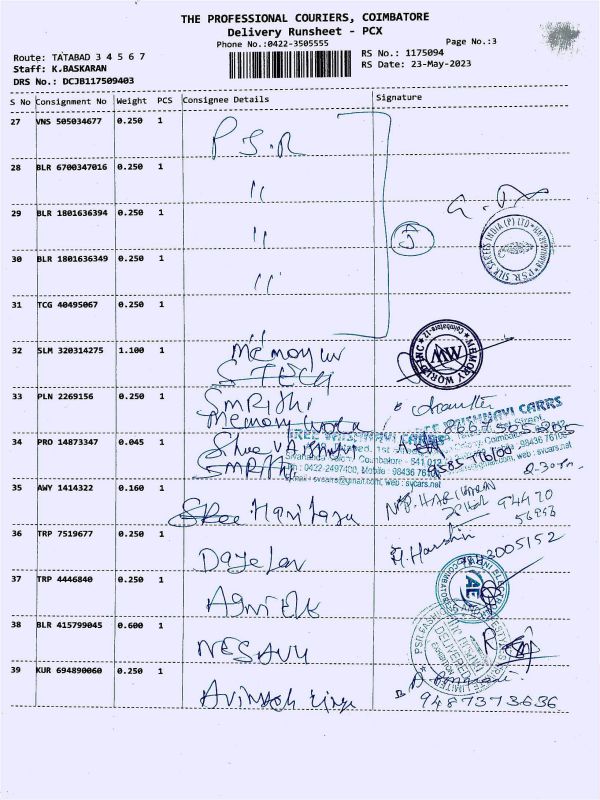 THE PROFESSIONAL COURIERS, COIMBATORE
Delivery Runsheet - PCX
Phone No.:0422-3505555
Page No.:3
Route: TATABAD 3 4 5 6 7
RS No.: 1175094
Staff: K.BASKARAN
RS Date: 23-May-2023
DRS No.: DCJB117509403
S No Consignment No Weight PCS Consignee Details Signature
27 VNS 505034677 0.250 1 P.S.R
28 BLR 6700347016 0.250 1 "
29 BLR 1801636394 0.250 1 "
5
30 BLR 1801636349 0.250 1 "
P.S.R. SILK SAREES INDIA (P) LTD
31 TCG 40495067 0.250 1 "
32 SLM 320314275 1.100 1 Memory
MEMORY WORLD INC
Coimbatore-12
MW
33 PLN 2269156 0.250 1 Smrithi
Memory
SREE VAISHNAVI CARRS
34 PRO 14873347 0.045 1 Shree Vaishnavi
Coimbatore - 641 012
Ph : 0422-2497400, Mobile : 98436 76106
E-mail : svcarrs@gmail.com, web : svcars.net
2-30
35 AWY 1414322 0.160 1
94470
36 TRP 7519677 0.250 1
37 TRP 4446840 0.250 1
AE
38 BLR 415799045 0.600 1 NESAVU
39 KUR 694890060 0.250 1 Avinash
9487373636